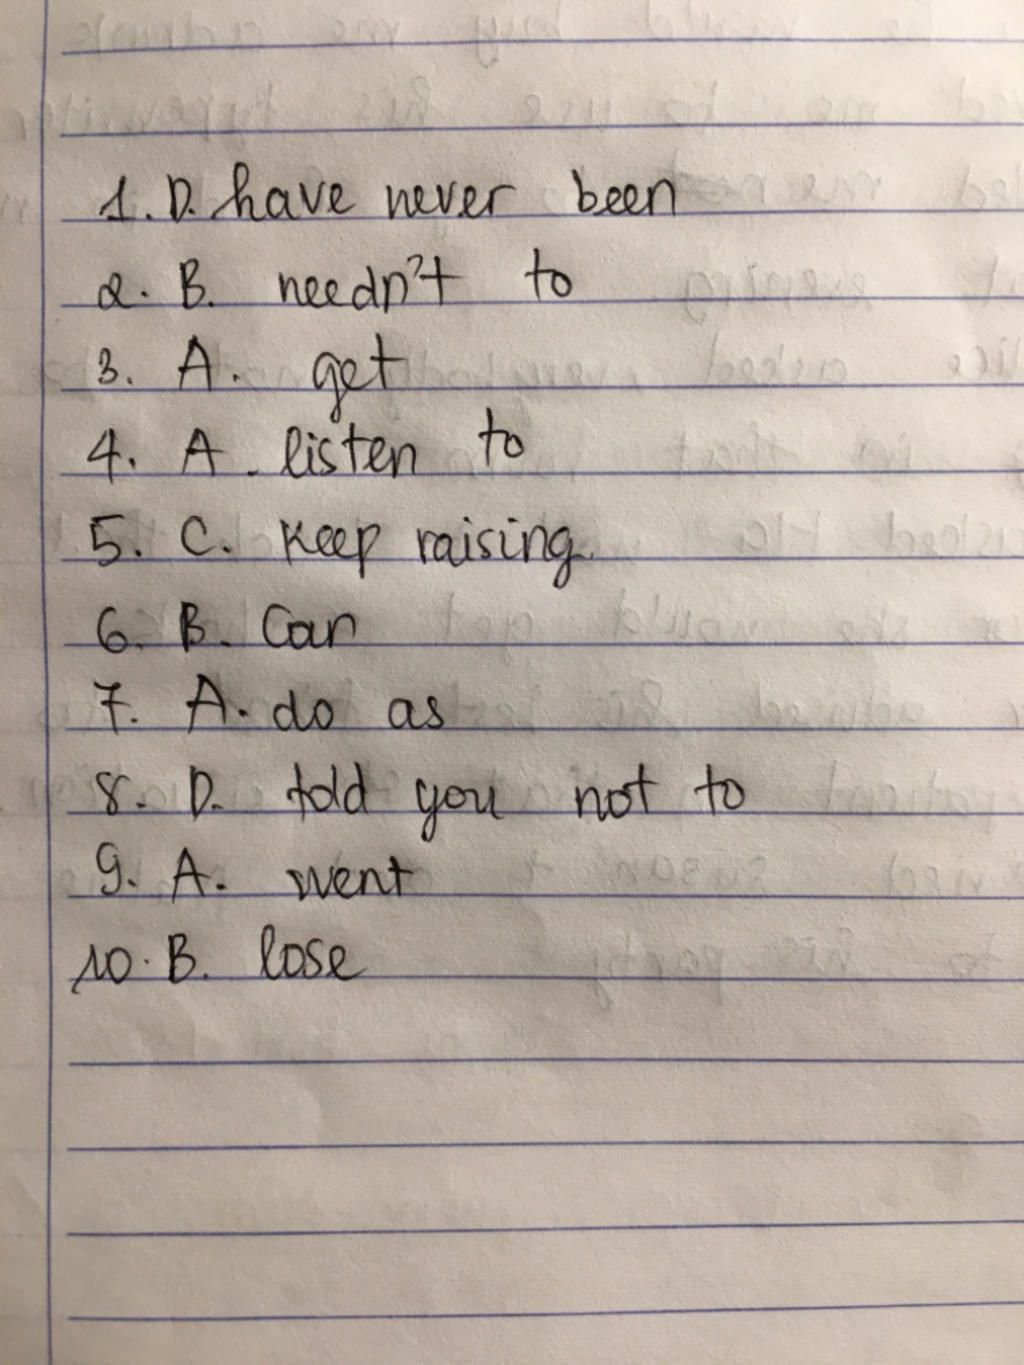 1. D. have never been
2. B. needn't to
3. A. get
4. A. listen to
5. C. keep raising
6. B. Can
7. A. do as
8. D. told you not to
9. A. went
10. B. lose